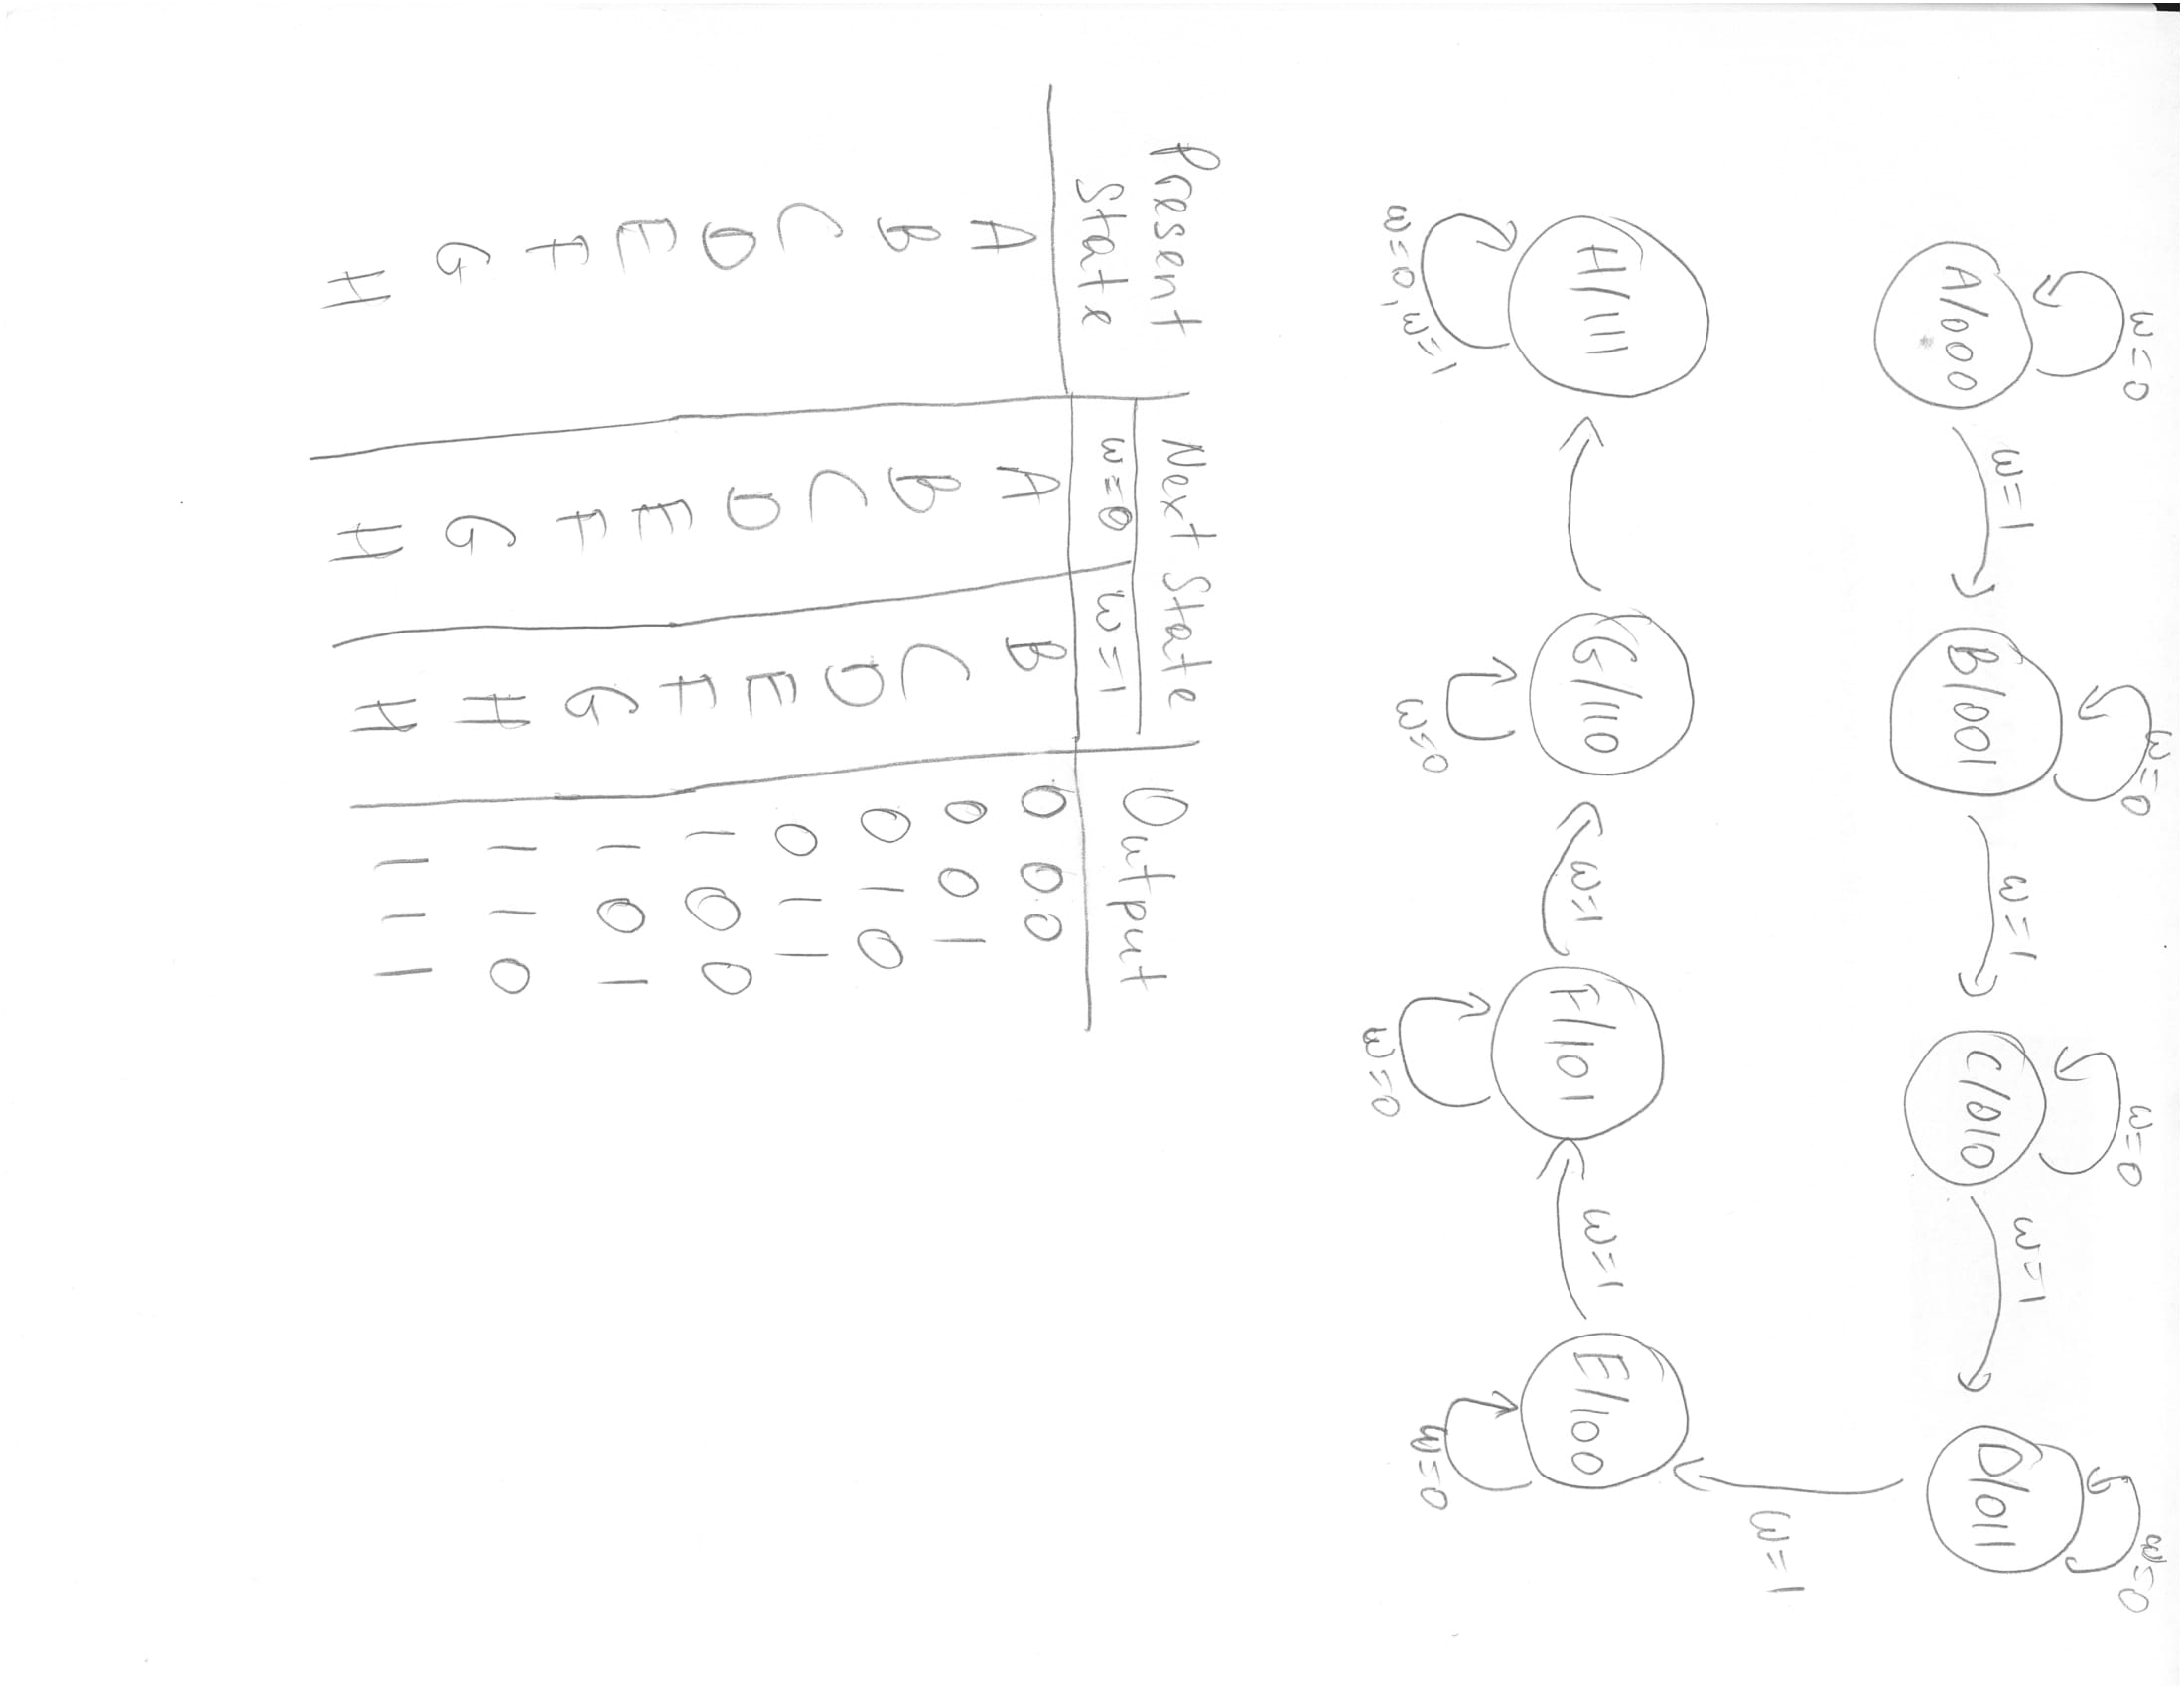 w=0 w=0 w=0 w=0
w=1 w=1 w=1
A/000 B/001 C/010 D/011
w=1
H/111 G/110 w=1 F/101 w=1 E/100
w=0, w=1 w=0 w=0 w=0
Present Next State Output
State w=0 w=1
A A B 0 0 0
B B C 0 0 1
C C D 0 1 0
D D E 0 1 1
E E F 1 0 0
F F G 1 0 1
G G H 1 1 0
H H H 1 1 1